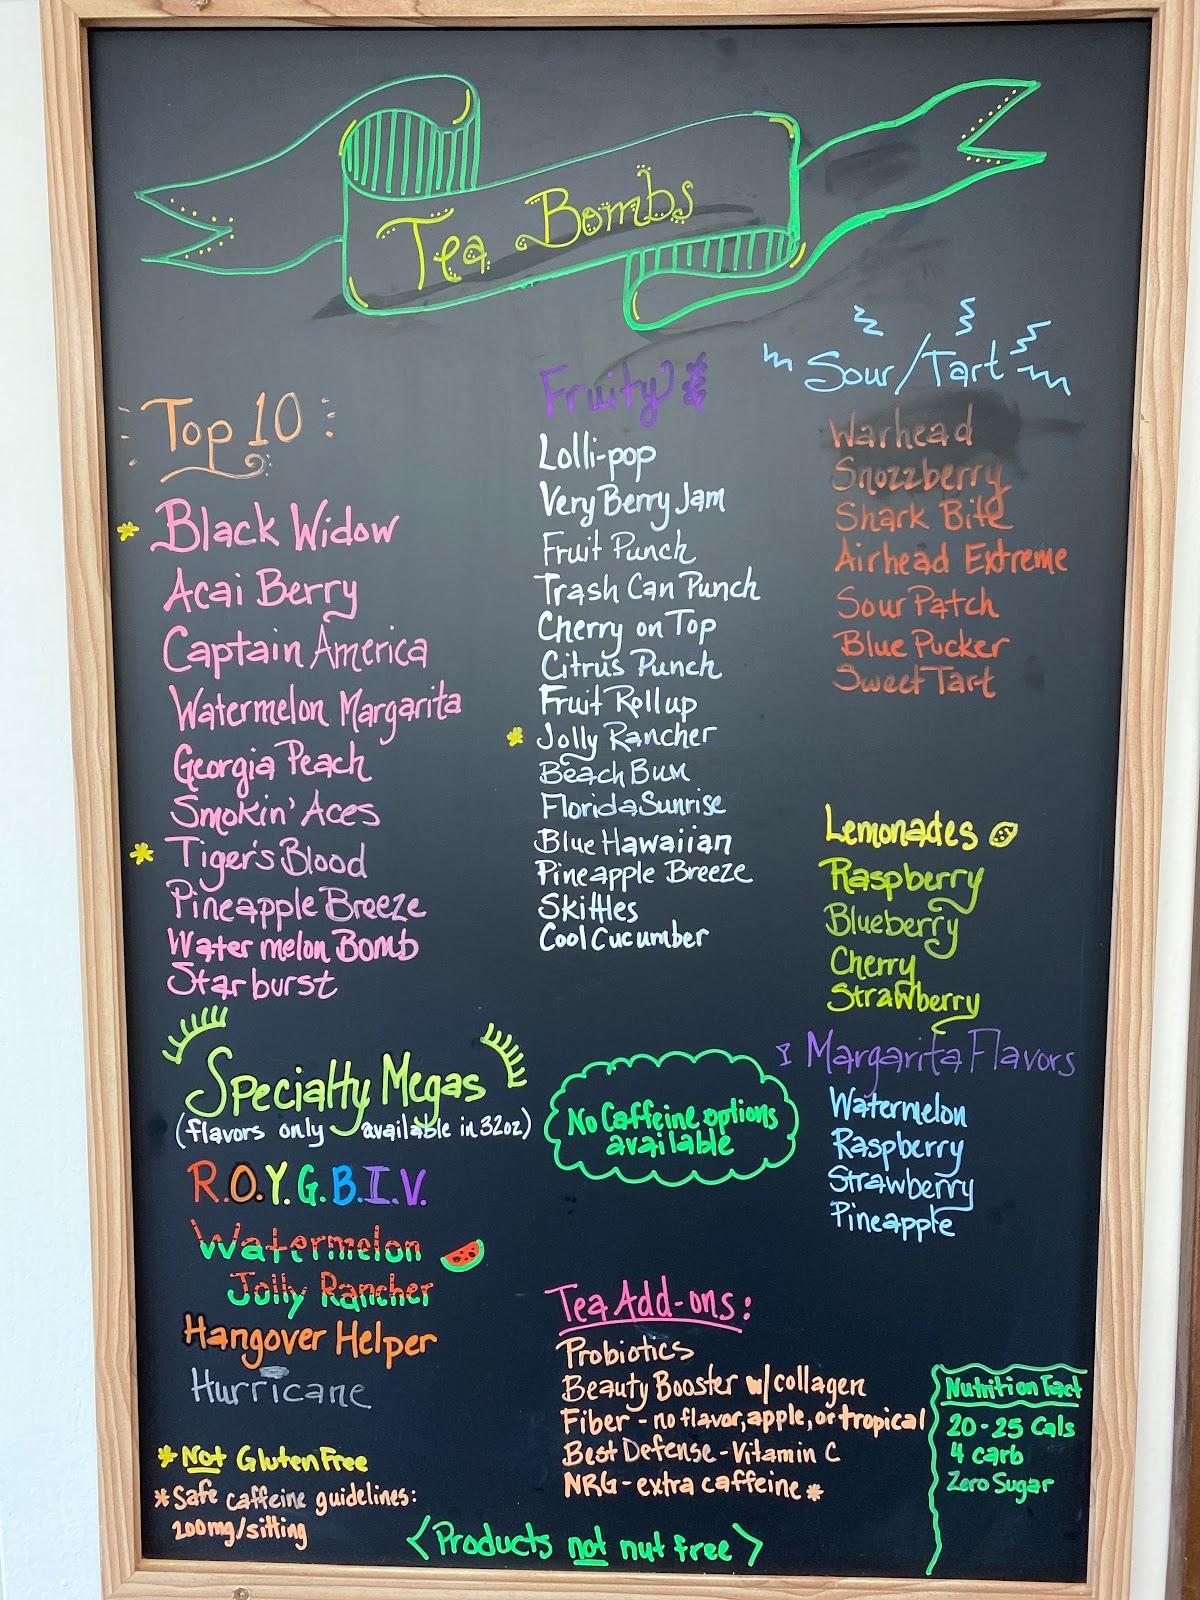 Tea Bombs
Top 10
* Black Widow
Acai Berry
Captain America
Watermelon Margarita
Georgia Peach
Smokin' Aces
* Tiger's Blood
Pineapple Breeze
Watermelon Bomb
Starburst
Specialty Megas
(flavors only available in 32oz)
R.O.Y.G.B.I.V.
Watermelon
Jolly Rancher
Hangover Helper
Hurricane
* Not Gluten Free
* Safe caffeine guidelines:
200mg/sitting
Fruity
Lolli-pop
Very Berry Jam
Fruit Punch
Trash Can Punch
Cherry on Top
Citrus Punch
Fruit Rollup
* Jolly Rancher
Beach Bum
Florida Sunrise
Blue Hawaiian
Pineapple Breeze
Skittles
Cool Cucumber
No Caffeine options
available
Sour/Tart
Warhead
Snozzberry
Shark Bite
Airhead Extreme
Sour Patch
Blue Pucker
Sweet Tart
Lemonades
Raspberry
Blueberry
Cherry
Strawberry
Margarita Flavors
Watermelon
Raspberry
Strawberry
Pineapple
Tea Add-ons:
Probiotics
Beauty Booster w/collagen
Fiber - no flavor, apple, or tropical
Best Defense - Vitamin C
NRG - extra caffeine *
Nutrition Fact
20-25 Cals
4 carb
Zero Sugar
<Products not nut free>